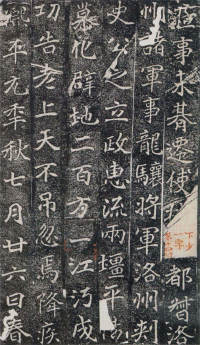 莅事未朞遷使持都督洛
州諸軍事龍驤將軍洛州刺
史公之立政惠流兩壃平南
慕化辟地二百方一江沔成
功告老上天不吊忽焉降疾
熙平元年秋七月廿六日春